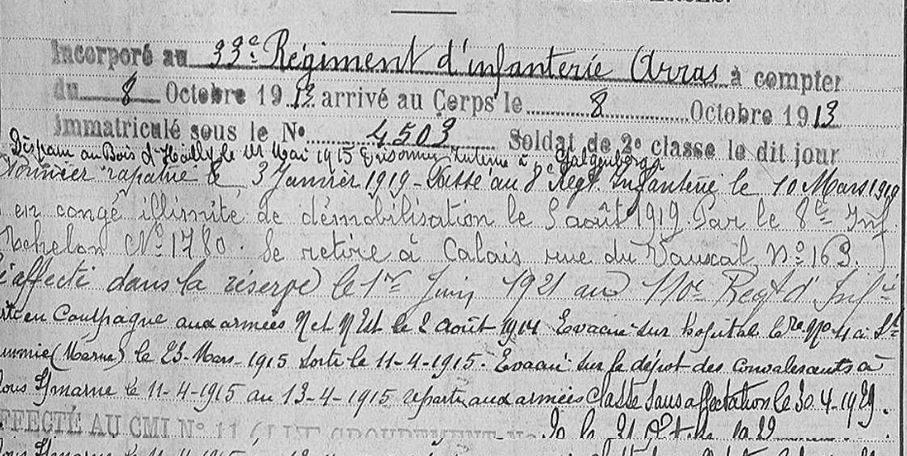 Incorporé au 33e Régiment d'infanterie Arras à compter
du 8 Octobre 1913 arrivé au Corps le 8 Octobre 1913
immatriculé sous le No 4503 Soldat de 2e classe le dit jour
Disparu au Bois d'Hailly le mai 1915 Prisonnier Interné à
rapatrié le 3 Janvier 1919 - Passé au 8e Regt Infanterie le 10 Mars 1919
en congé illimité de démobilisation le 5 août 1919 Par le 8e Inf
échelon No 1780. Se retire à Calais rue du Vauxal, No 163.
affecté dans la réserve le 1er Juin 1921 au 110e Regt d'Infie
en Campagne aux armées N et N Est le 2 août 1914 Evacué sur hopital No 4 à St
(Marne) le 23-Mars-1915 sorti le 11-4-1915. Evacué sur le dépot des convalescents à
s/marne le 11-4-1915 au 13-4-1915 reparti aux armées Classé Sans affectation le 30-4-1929.
AFFECTÉ AU CMI No